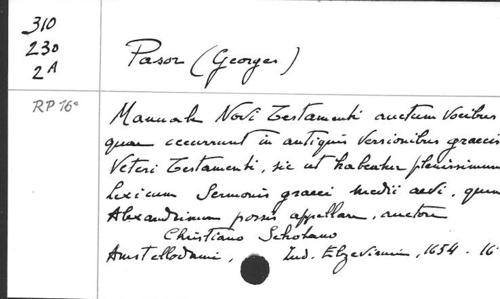 310
230
2A
RP 16°
Pasor (Georges)
Manuale Novi Testamenti auctum vocibus
quae occurrunt in antiquis versionibus graecis
Veteri Testamenti, sic ut habeatur plenissimum
Lexicum Sermonis graeci medii aevi, quem
Alexandrinum possis appellare, auctore
Christiano Schotano
Amstellodami, Lud. Elzevirium, 1654. 16°